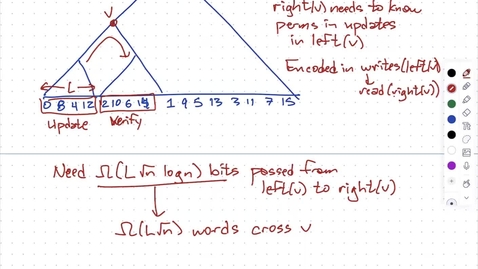 right(v) needs to know
perms in updates
in left(v)
Encoded in writes(left(v))
read(right(v))
v
L
0 8 4 12 2 10 6 14 1 9 5 13 3 11 7 15
Update Verify
Need Ω(L√n logn) bits passed from
left(v) to right(v)
Ω(L√n) words cross v